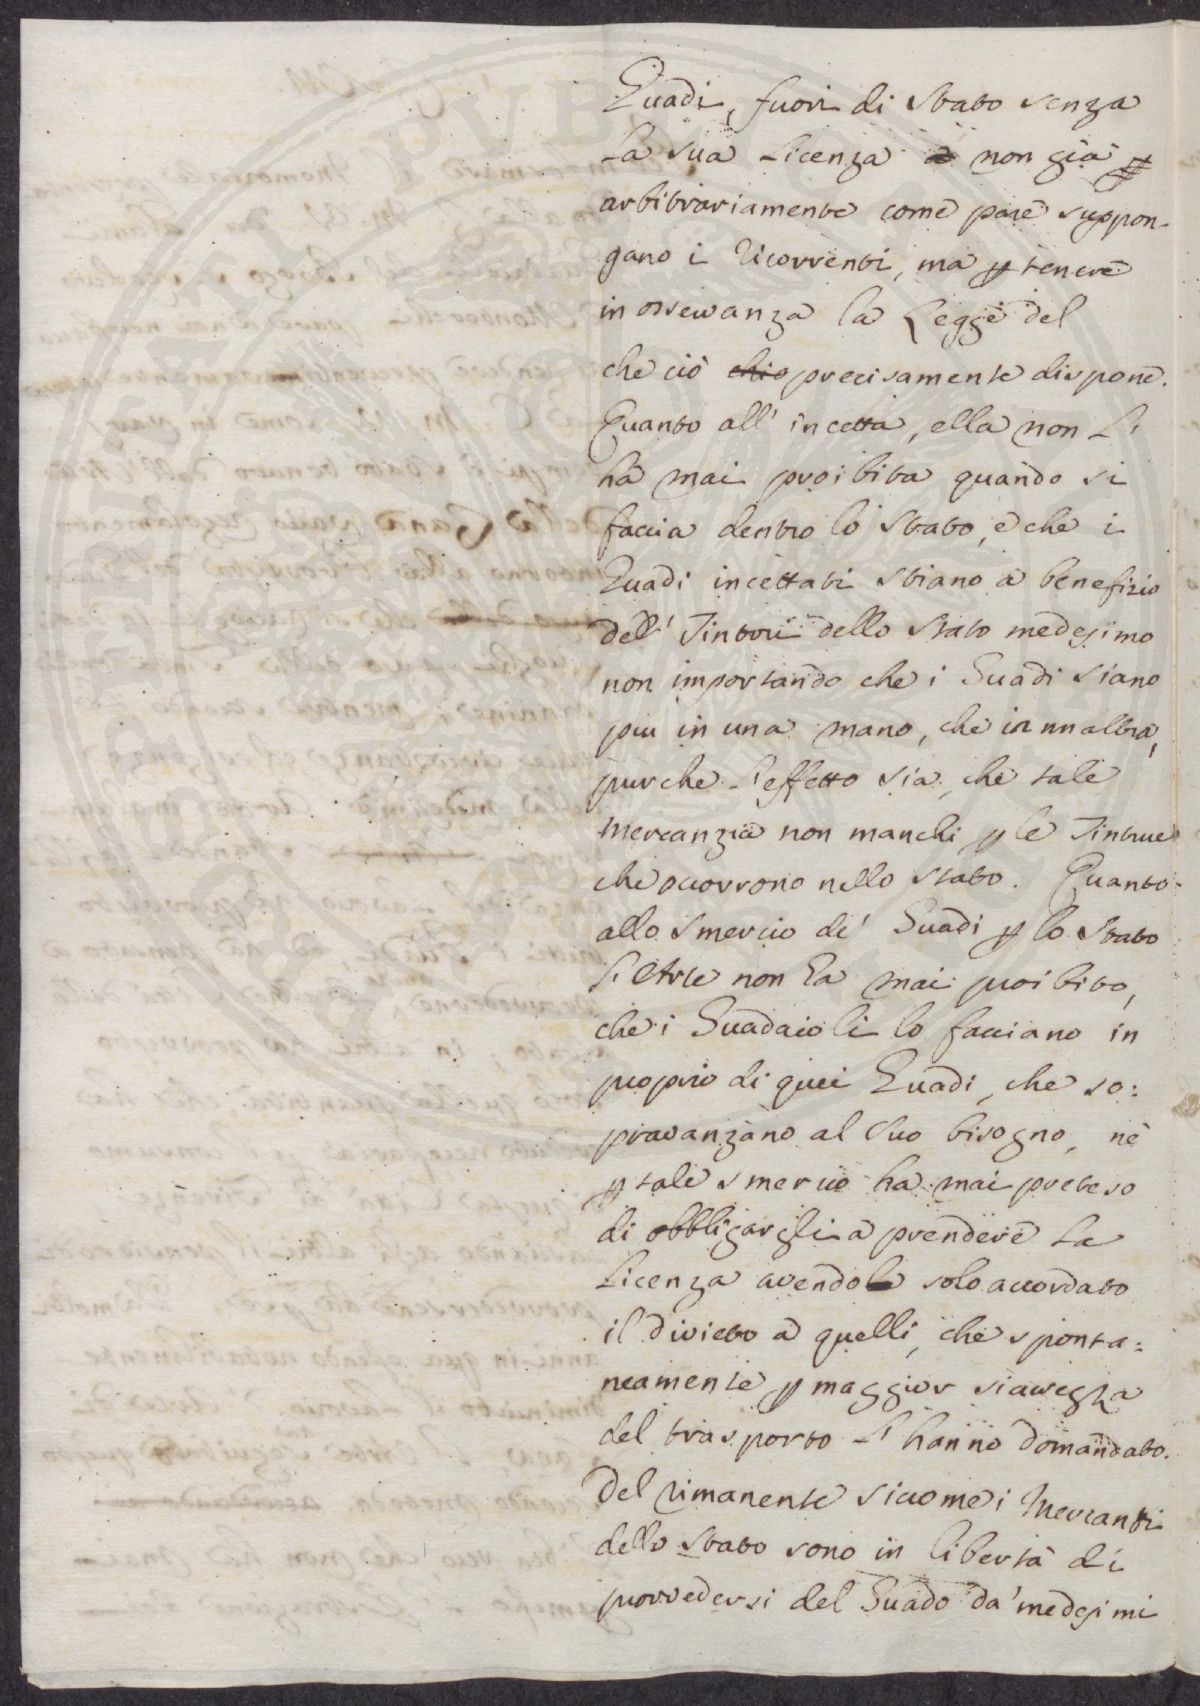 Guadi, fuori di Stato senza
la sua Licenza e non già p
arbitrariamente come pare suppon-
gano i Ricorrenti, ma p tenere
in osservanza la Legge del
che ciò chio precisamente dispone.
Quanto all' incetta, ella non l'
hà mai proibita quando si
faccia dentro lo Stato, e che i
Guadi incettati stiano a benefizio
dell' Tintori dello Stato medesimo
non importando che i Guadi siano
piu in una mano, che in un altra,
purche l'effetto sia, che tale
mercanzia non manchi p le Tinture
che occorrono nello Stato. Quanto
allo Smercio de' Guadi p lo Stato
l'Arte non ha mai proibito,
che i Guadaioli lo facciano in
proprio di quei Guadi, che so:
pravanzano al Suo bisogno, nè
p tale smercio ha mai preteso
di obbligargli a prendere la
Licenza avendola solo accordato
il divieto a quelli, che sponta:
neamente p maggior siavregza
del trasporto l' hanno domandato.
Del rimanente siccome i Mercanti
dello Stato sono in libertà di
provvedersi del Guado da' medesimi